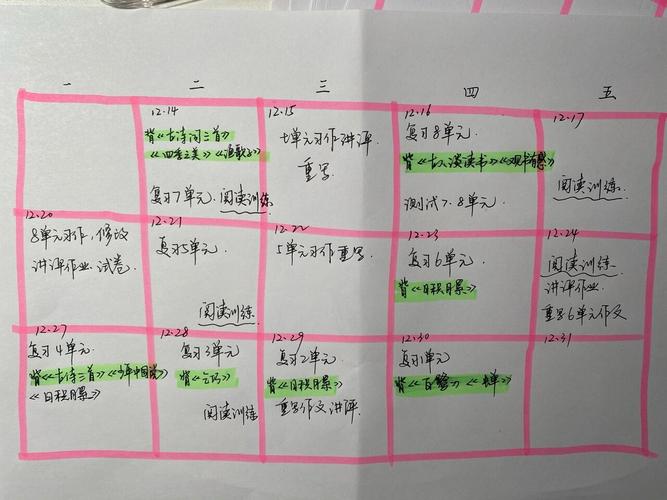 一 二 三 四 五
12.14
背《古诗词三首》
《四季之美》《渔歌子》
复习7单元.阅读训练
12.15
七单元习作讲评
重写
12.16
复习8单元.
背《古人谈读书》《观书有感》
测试7.8单元.
12.17
阅读训练.
12.20
8单元习作,修改
讲评作业.试卷.
12.21
复习5单元.
阅读训练
12.22
5单元习作重写.
12.23
复习6单元.
背《日积月累》
12.24
阅读训练.
讲评作业.
重写6单元作文
12.27
复习4单元.
背《古诗三首》《少年中国说》
《日积月累》
12.28
复习3单元
背
阅读训练
12.29
复习2单元
背《日积月累》
重写作文讲评.
12.30
复习1单元
背《白鹭》《蝉》
12.31